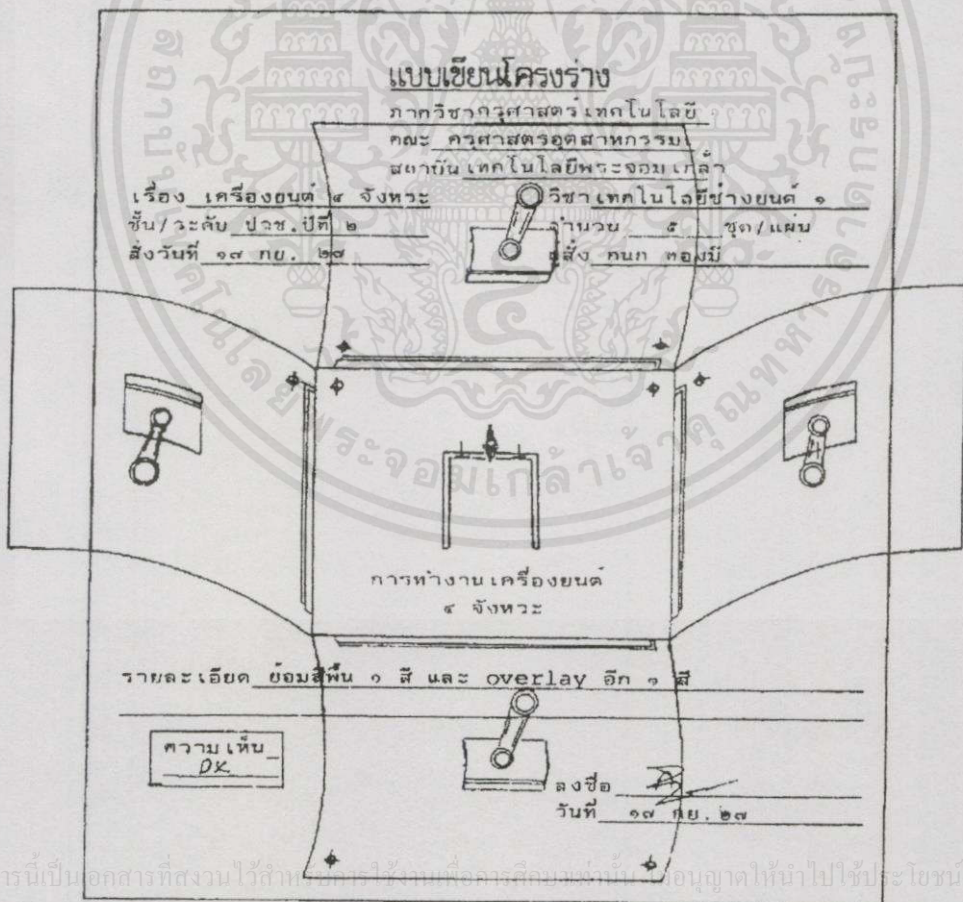 แบบเขียนโครงร่าง
ภาควิชาครุศาสตร์เทคโนโลยี
คณะ ครุศาสตร์อุตสาหกรรม
สถาบันเทคโนโลยีพระจอมเกล้า
เรื่อง เครื่องยนต์ ๔ จังหวะ วิชาเทคโนโลยีช่างยนต์ ๑
ชั้น/ระดับ ปวช.ปีที่ ๒ จำนวน ๕ ชุด/แผ่น
สั่งวันที่ ๑๗ กย. ๒๗ ผู้สั่ง กนก ทองมี
การทำงานเครื่องยนต์
๔ จังหวะ
รายละเอียด ย้อมสีพื้น ๑ สี และ overlay อีก ๑ สี
ความเห็น
OK
ลงชื่อ
วันที่ ๑๗ กย. ๒๗
พระจอมเกล้าเจ้าคุณทหารลาดกระบัง
ารนี้เป็นเอกสารที่สงวนไว้สำหรับการใช้งานเพื่อการศึกษาเท่านั้น ไม่อนุญาตให้นำไปใช้ประโยชน์